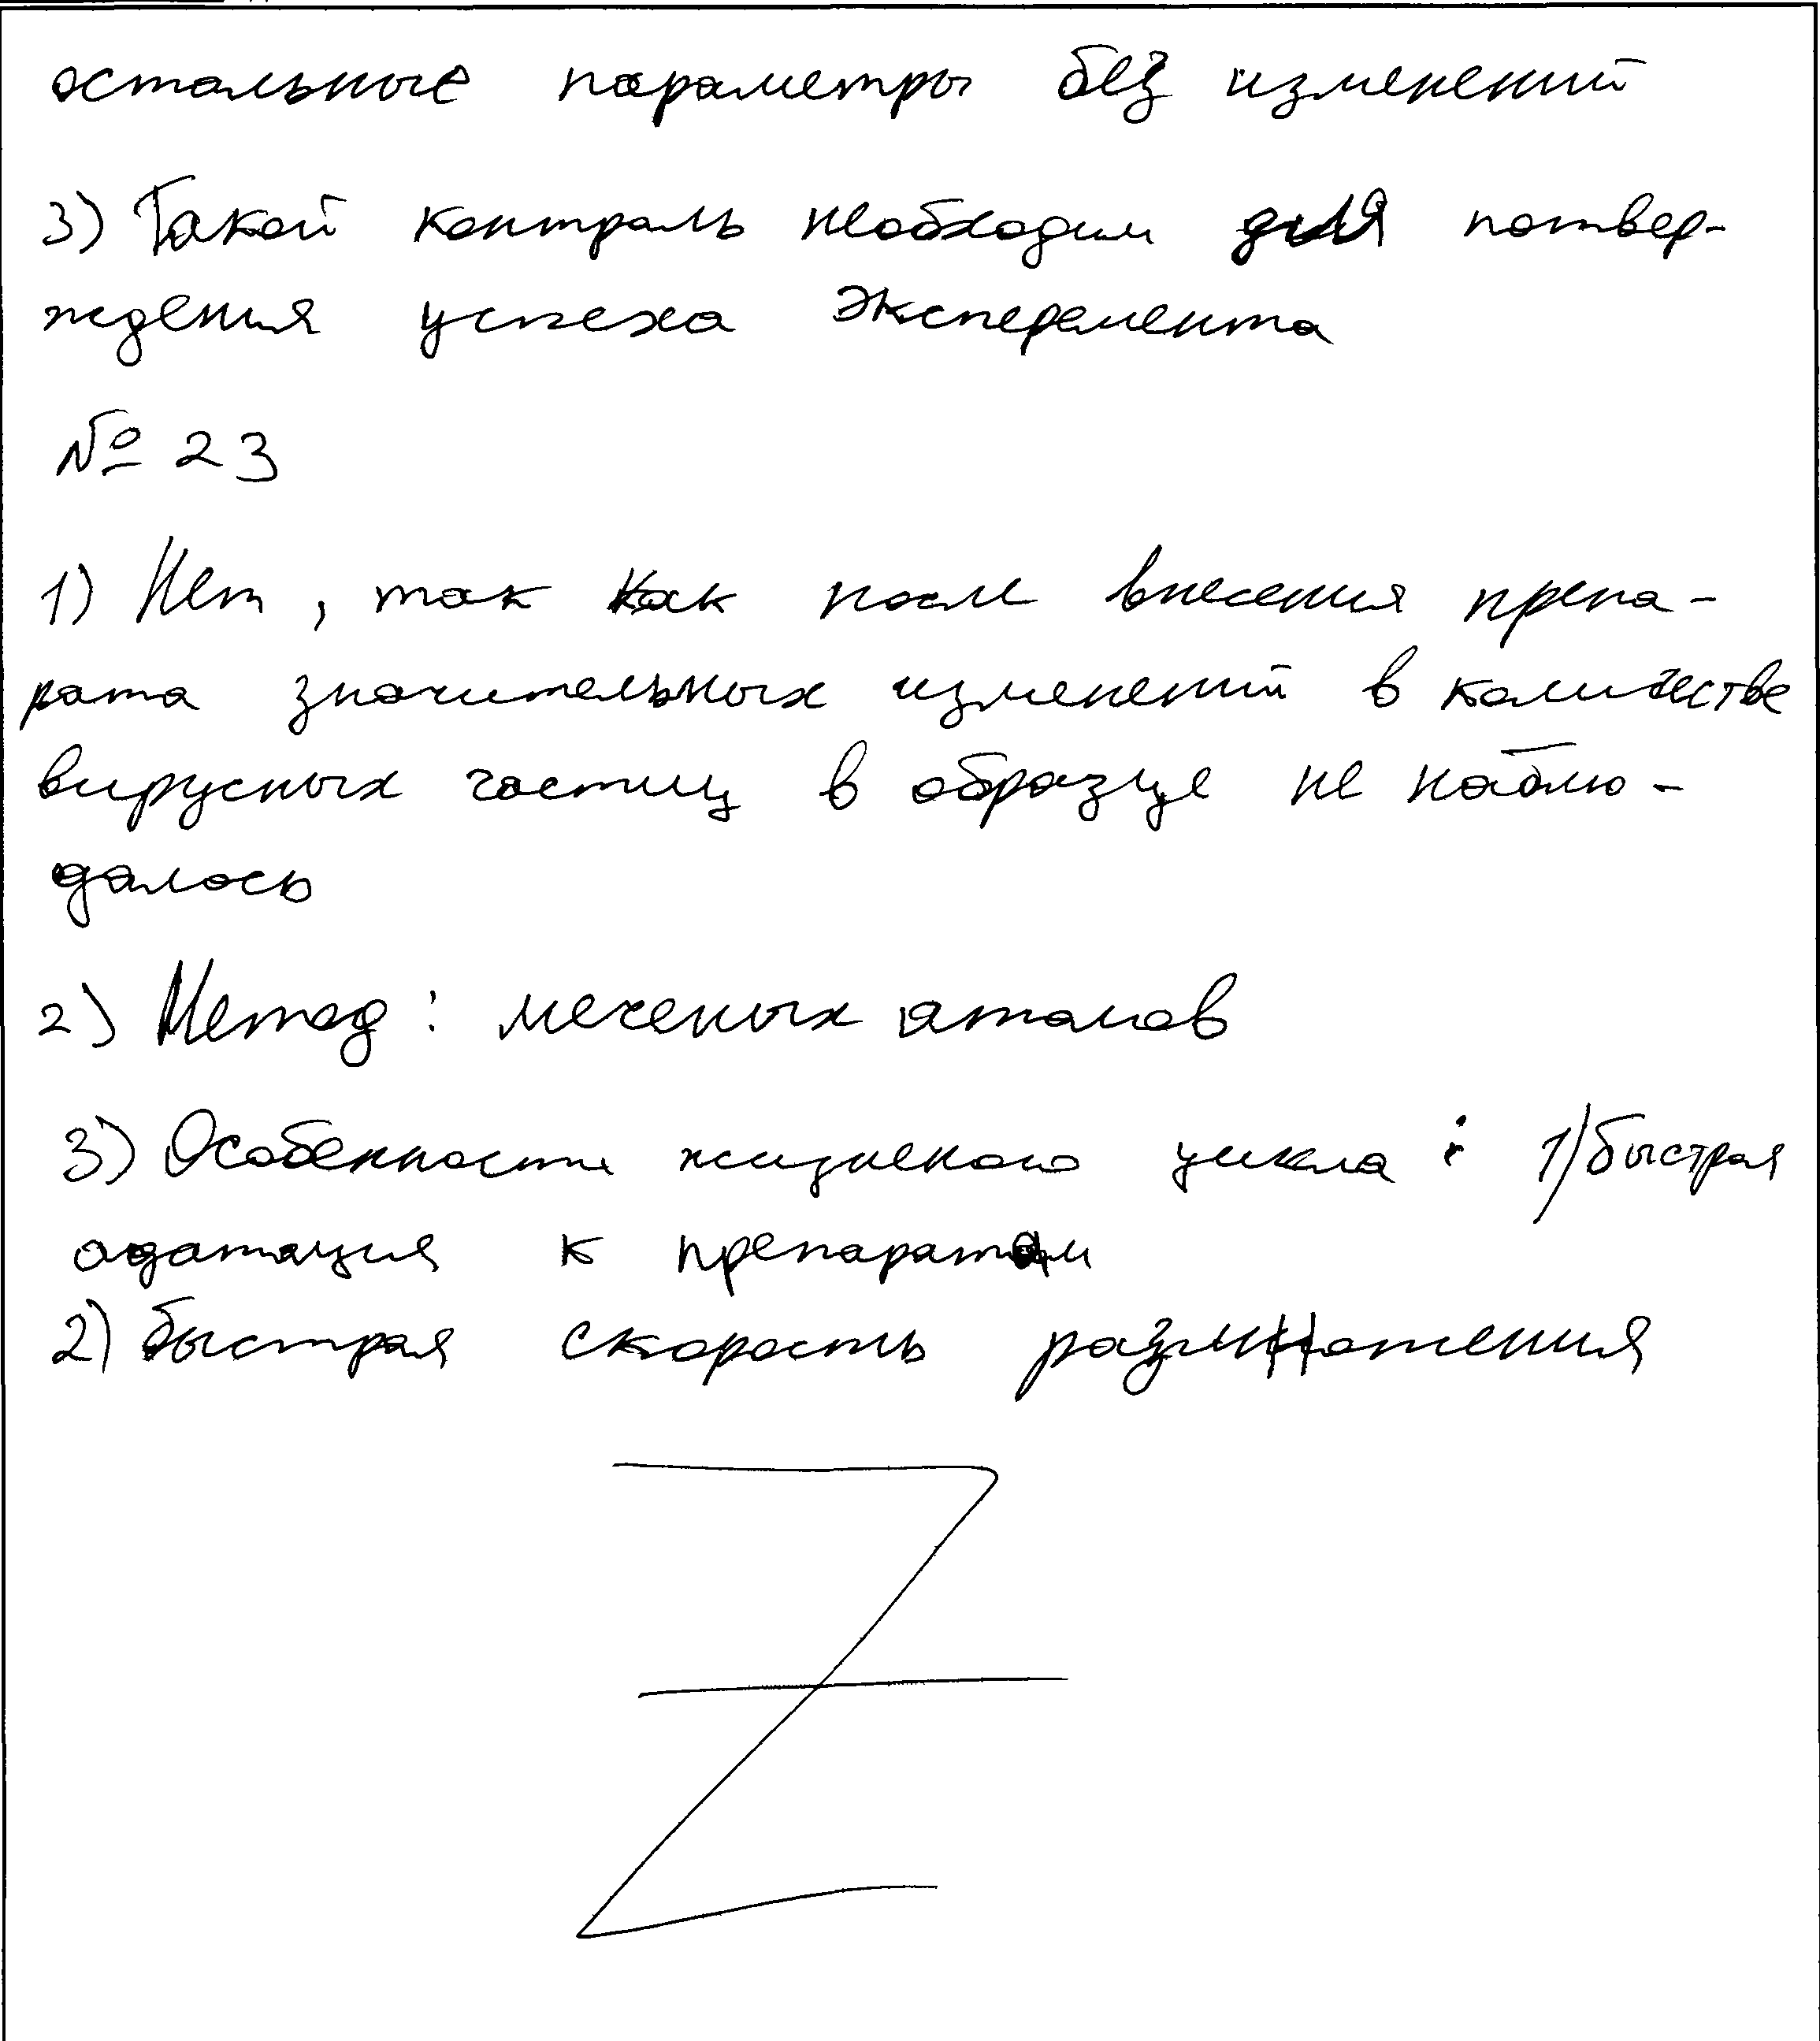 остальные параметры без изменений
3) Такой контроль необходим для потвер-
ждения успеха эксперемента
№ 23
1) Нет, так как после внесения препа-
рата значительных изменений в количестве
вирусных частиц в образце не наблю-
далось
2) Метод: меченых атомов
3) Особенности жизненого цикла: 1) быстрая
адатация к препаратам
2) быстрая скорость размножения